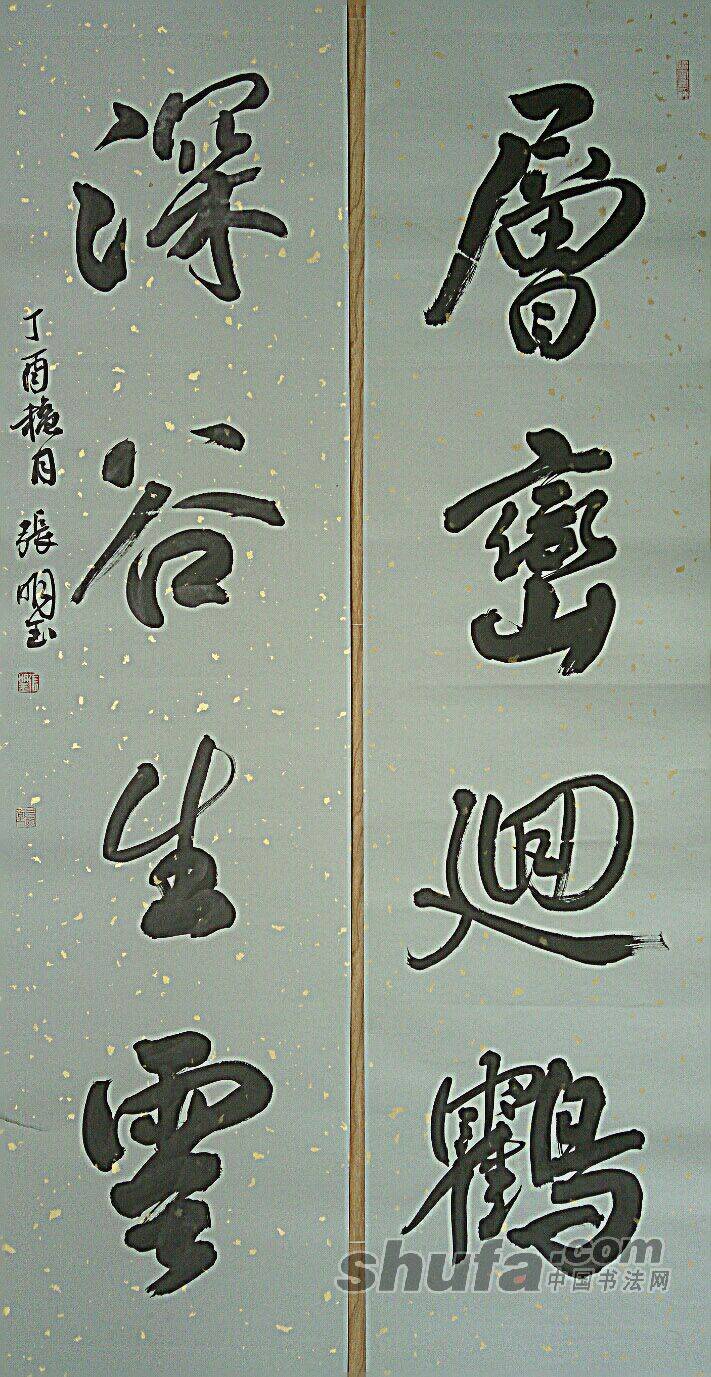 層巒迴鶴
深谷生雲
丁酉秋月 張明玉
shufa.com
中国书法网